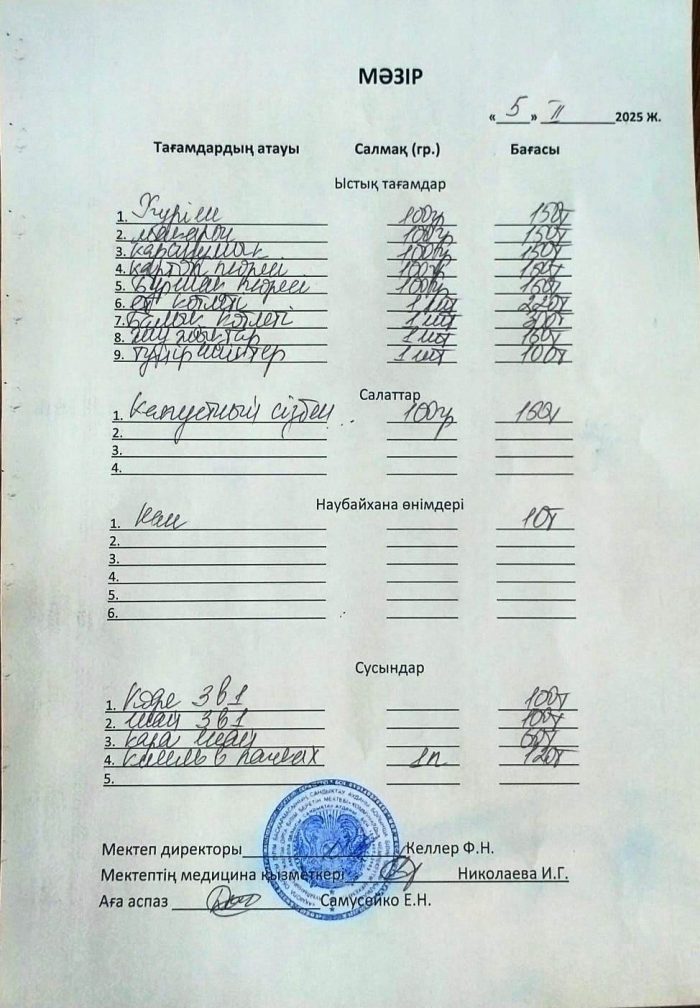 МӘЗІР
« 5 » II 2025 Ж.
Тағамдардың атауы Салмақ (гр.) Бағасы
Ыстық тағамдар
1. Күріш 100гр 150т
2. макарон 100гр 150т
3. карақұмық 100гр 150т
4. картоп пюресі 100гр 150т
5. Бұршақ пюресі 100гр 150т
6. ет котлеті 1 шт 220т
7. Балық котлеті 1 шт 300т
8. 1 шт 150т
9. 1 шт 100т
Салаттар
1. Капустный сізбен 100гр 150т
2.
3.
4.
Наубайхана өнімдері
1. Нан 10т
2.
3.
4.
5.
6.
Сусындар
1. Кофе 3 в 1 100т
2. шай 3 в 1 100т
3. кара шай 60т
4. кисель в пачках 1п. 120т
5.
Мектеп директоры Келлер Ф.Н.
Мектептің медицина қызметкері Николаева И.Г.
Аға аспаз Самусейко Е.Н.